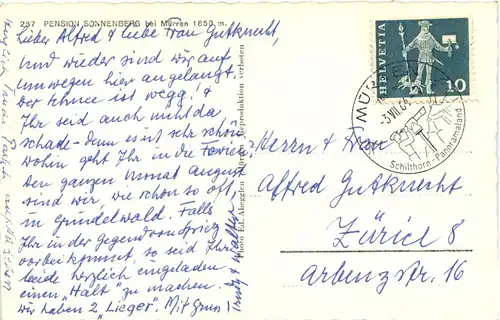 237 PENSION SONNENBERG bei Mürren 1850 m.
Lieber Alfred & liebe Frau Gutknecht,
Und wieder sind wir auf
Umwegen hier angelangt.
Der Schnee ist weg &
Ihr seid auch nicht da
schade - Denn es ist sehr schön
wohin geht Ihr in die Ferien?
Den ganzen Monat August
sind wir, wie schon so oft,
in Grindelwald. Falls
Ihr in der Gegend
vorbeikommt, so seid Ihr
beide herzlich eingeladen
einen "Halt" zu machen.
wir haben 2 "Lieger". Mit Gruss
Trudy & Walter
Photo Ed. Abegglen Mürren Reproduktion verboten
HELVETIA
10
MÜRREN
Schilthorn-Panoramaland
Herrn & Frau
Alfred Gutknecht
Zürich 8
Arbenzstr. 16